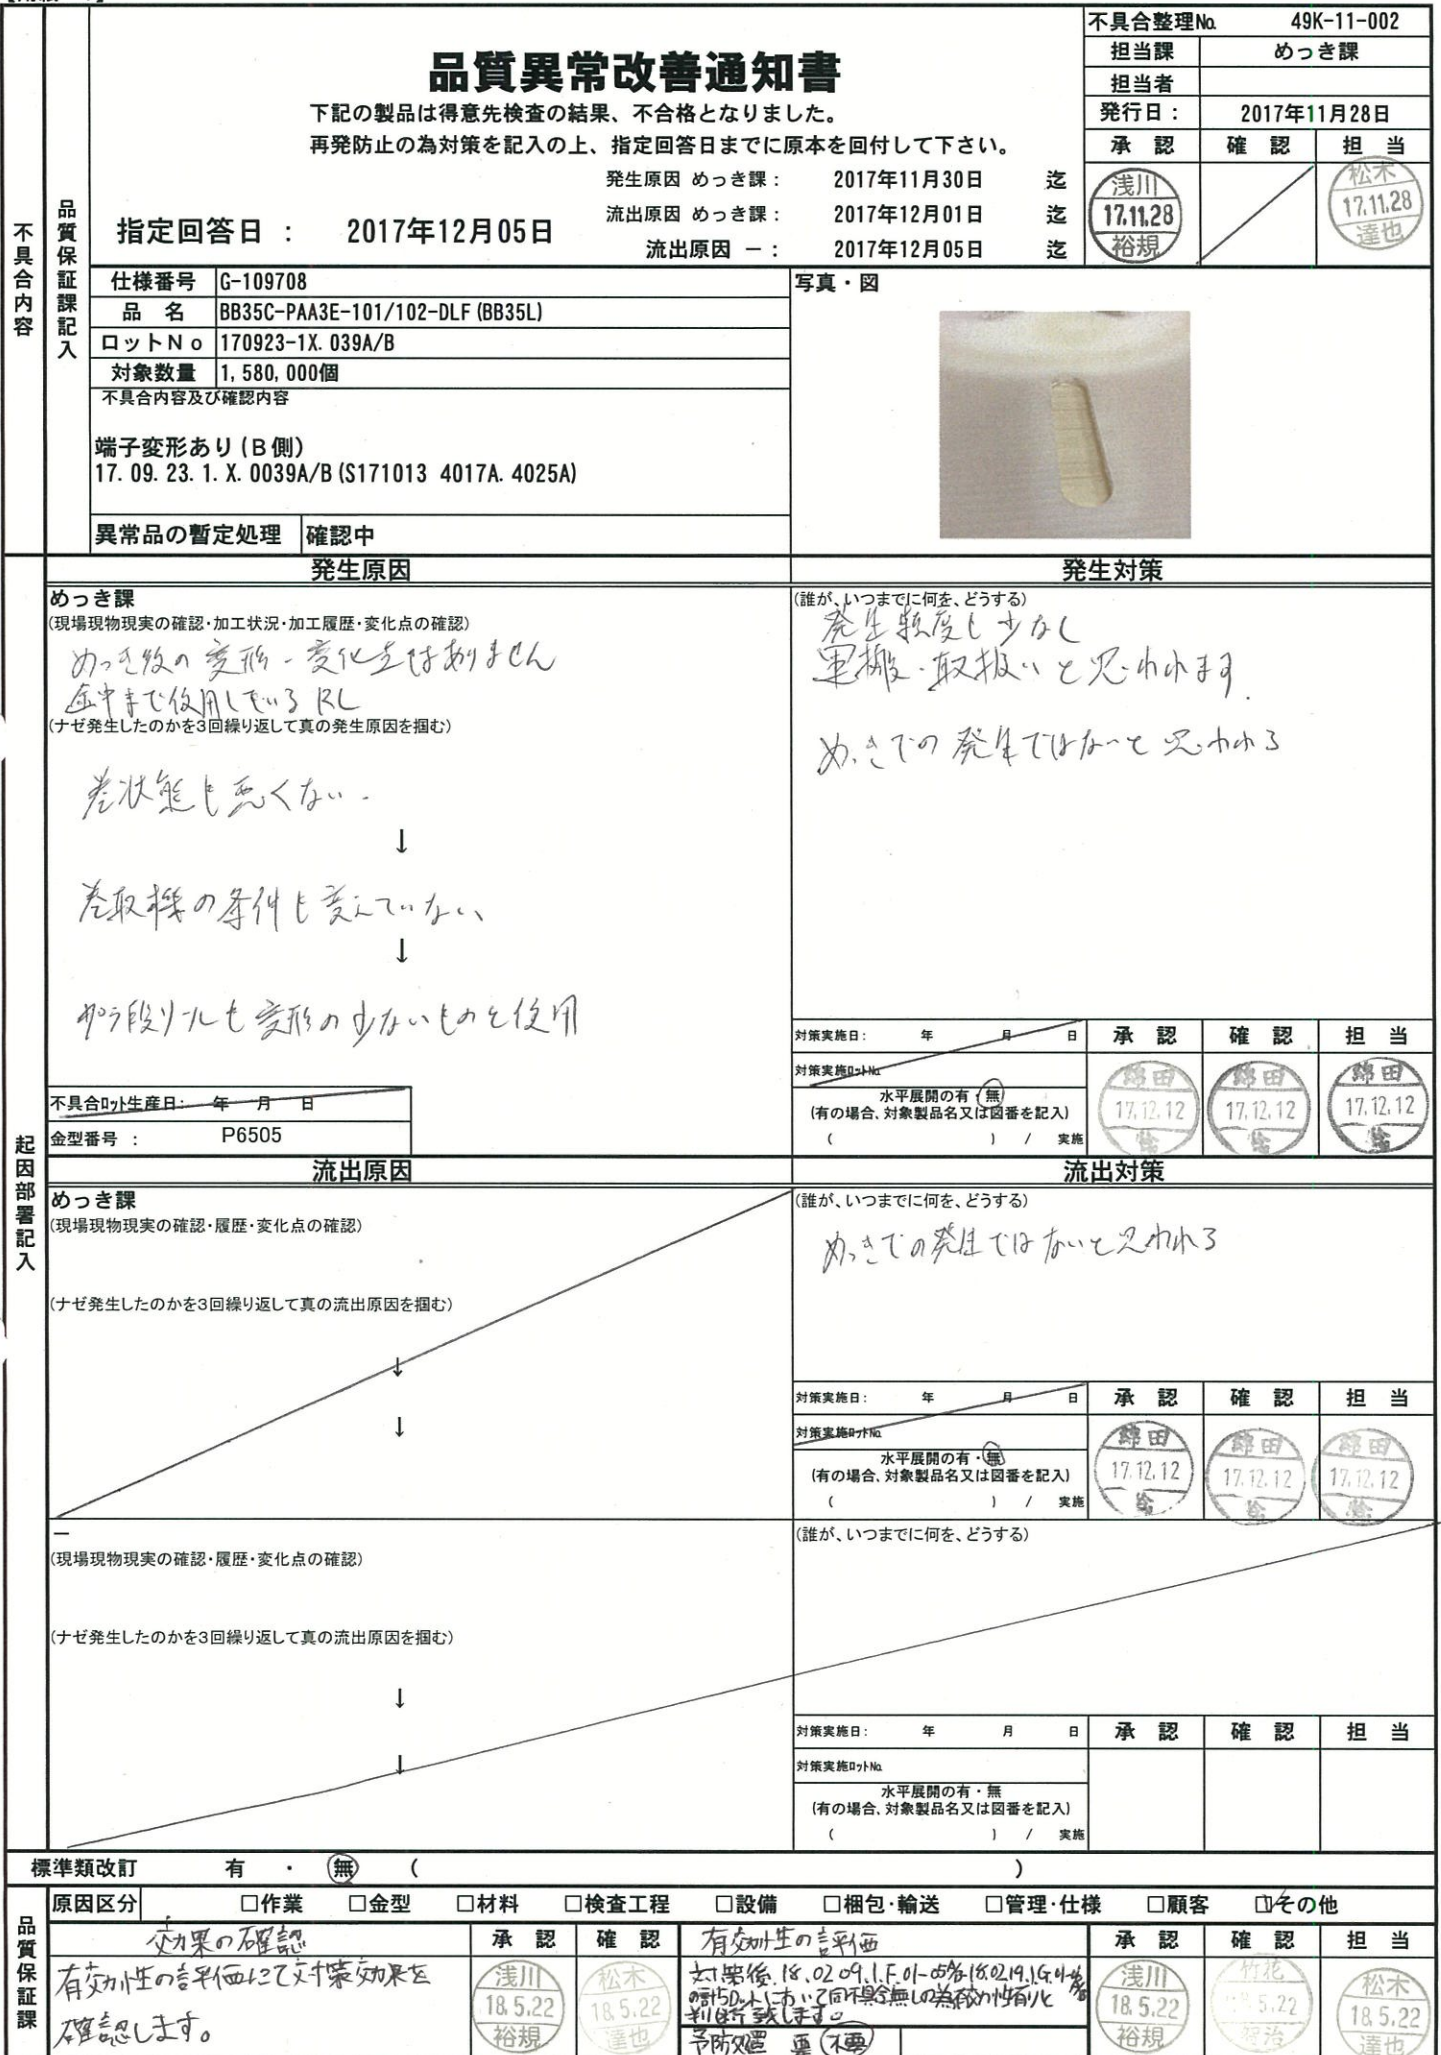 不具合整理No. 49K-11-002
担当課 めっき課
担当者
発行日： 2017年11月28日
承 認 確 認 担 当
浅川 17.11.28 裕規
松木 17.11.28 達也
品質異常改善通知書
下記の製品は得意先検査の結果、不合格となりました。
再発防止の為対策を記入の上、指定回答日までに原本を回付して下さい。
発生原因 めっき課： 2017年11月30日 迄
流出原因 めっき課： 2017年12月01日 迄
流出原因 ー： 2017年12月05日 迄
指定回答日 ： 2017年12月05日
不具合内容
品質保証課記入
仕様番号 G-109708
品 名 BB35C-PAA3E-101/102-DLF(BB35L)
ロットＮｏ 170923-1X.039A/B
対象数量 1,580,000個
不具合内容及び確認内容
端子変形あり(Ｂ側)
17.09.23.1.X.0039A/B(S171013 4017A.4025A)
異常品の暫定処理 確認中
写真・図
起因部署記入
発生原因
めっき課
(現場現物現実の確認・加工状況・加工履歴・変化点の確認)
めっき後の変形・変化点はありません
途中まで使用しているRL
(ナゼ発生したのかを3回繰り返して真の発生原因を掴む)
巻状態も悪くない.
↓
巻取機の条件も変えていない、
↓
プラ段リールも変形の少ないものを使用
不具合ﾛｯﾄ生産日： 年 月 日
金型番号 ： P6505
発生対策
(誰が、いつまでに何を、どうする)
発生頻度も少なく
運搬・取扱いと思われます.
めっきでの発生ではないと思われる
対策実施日： 年 月 日
対策実施ﾛｯﾄNo.
水平展開の有・無
(有の場合、対象製品名又は図番を記入)
( ) / 実施
承 認 確 認 担 当
綿田 17.12.12
綿田 17.12.12
綿田 17.12.12
流出原因
めっき課
(現場現物現実の確認・履歴・変化点の確認)
(ナゼ発生したのかを3回繰り返して真の流出原因を掴む)
↓
↓
流出対策
(誰が、いつまでに何を、どうする)
めっきでの発生ではないと思われる
対策実施日： 年 月 日
対策実施ﾛｯﾄNo.
水平展開の有・無
(有の場合、対象製品名又は図番を記入)
( ) / 実施
承 認 確 認 担 当
綿田 17.12.12
綿田 17.12.12
綿田 17.12.12
ー
(現場現物現実の確認・履歴・変化点の確認)
(ナゼ発生したのかを3回繰り返して真の流出原因を掴む)
↓
↓
(誰が、いつまでに何を、どうする)
対策実施日： 年 月 日
対策実施ﾛｯﾄNo.
水平展開の有・無
(有の場合、対象製品名又は図番を記入)
( ) / 実施
承 認 確 認 担 当
標準類改訂 有 ・ 無 ( )
品質保証課
原因区分 □作業 □金型 □材料 □検査工程 □設備 □梱包・輸送 □管理・仕様 □顧客 ☑その他
効果の確認
有効性の評価にて対策効果を
確認します。
承 認 確 認
浅川 18.5.22 裕規
松木 18.5.22 達也
有効性の評価
対策後、18.02.09.1.F.01-05% 18.02.19.1.G.
の計5ロットにおいて同不具合無しの為有効性有りと
判断致します。
予防処置 要 不要
承 認 確 認 担 当
浅川 18.5.22 裕規
竹花 5.22 智治
松木 18.5.22 達也